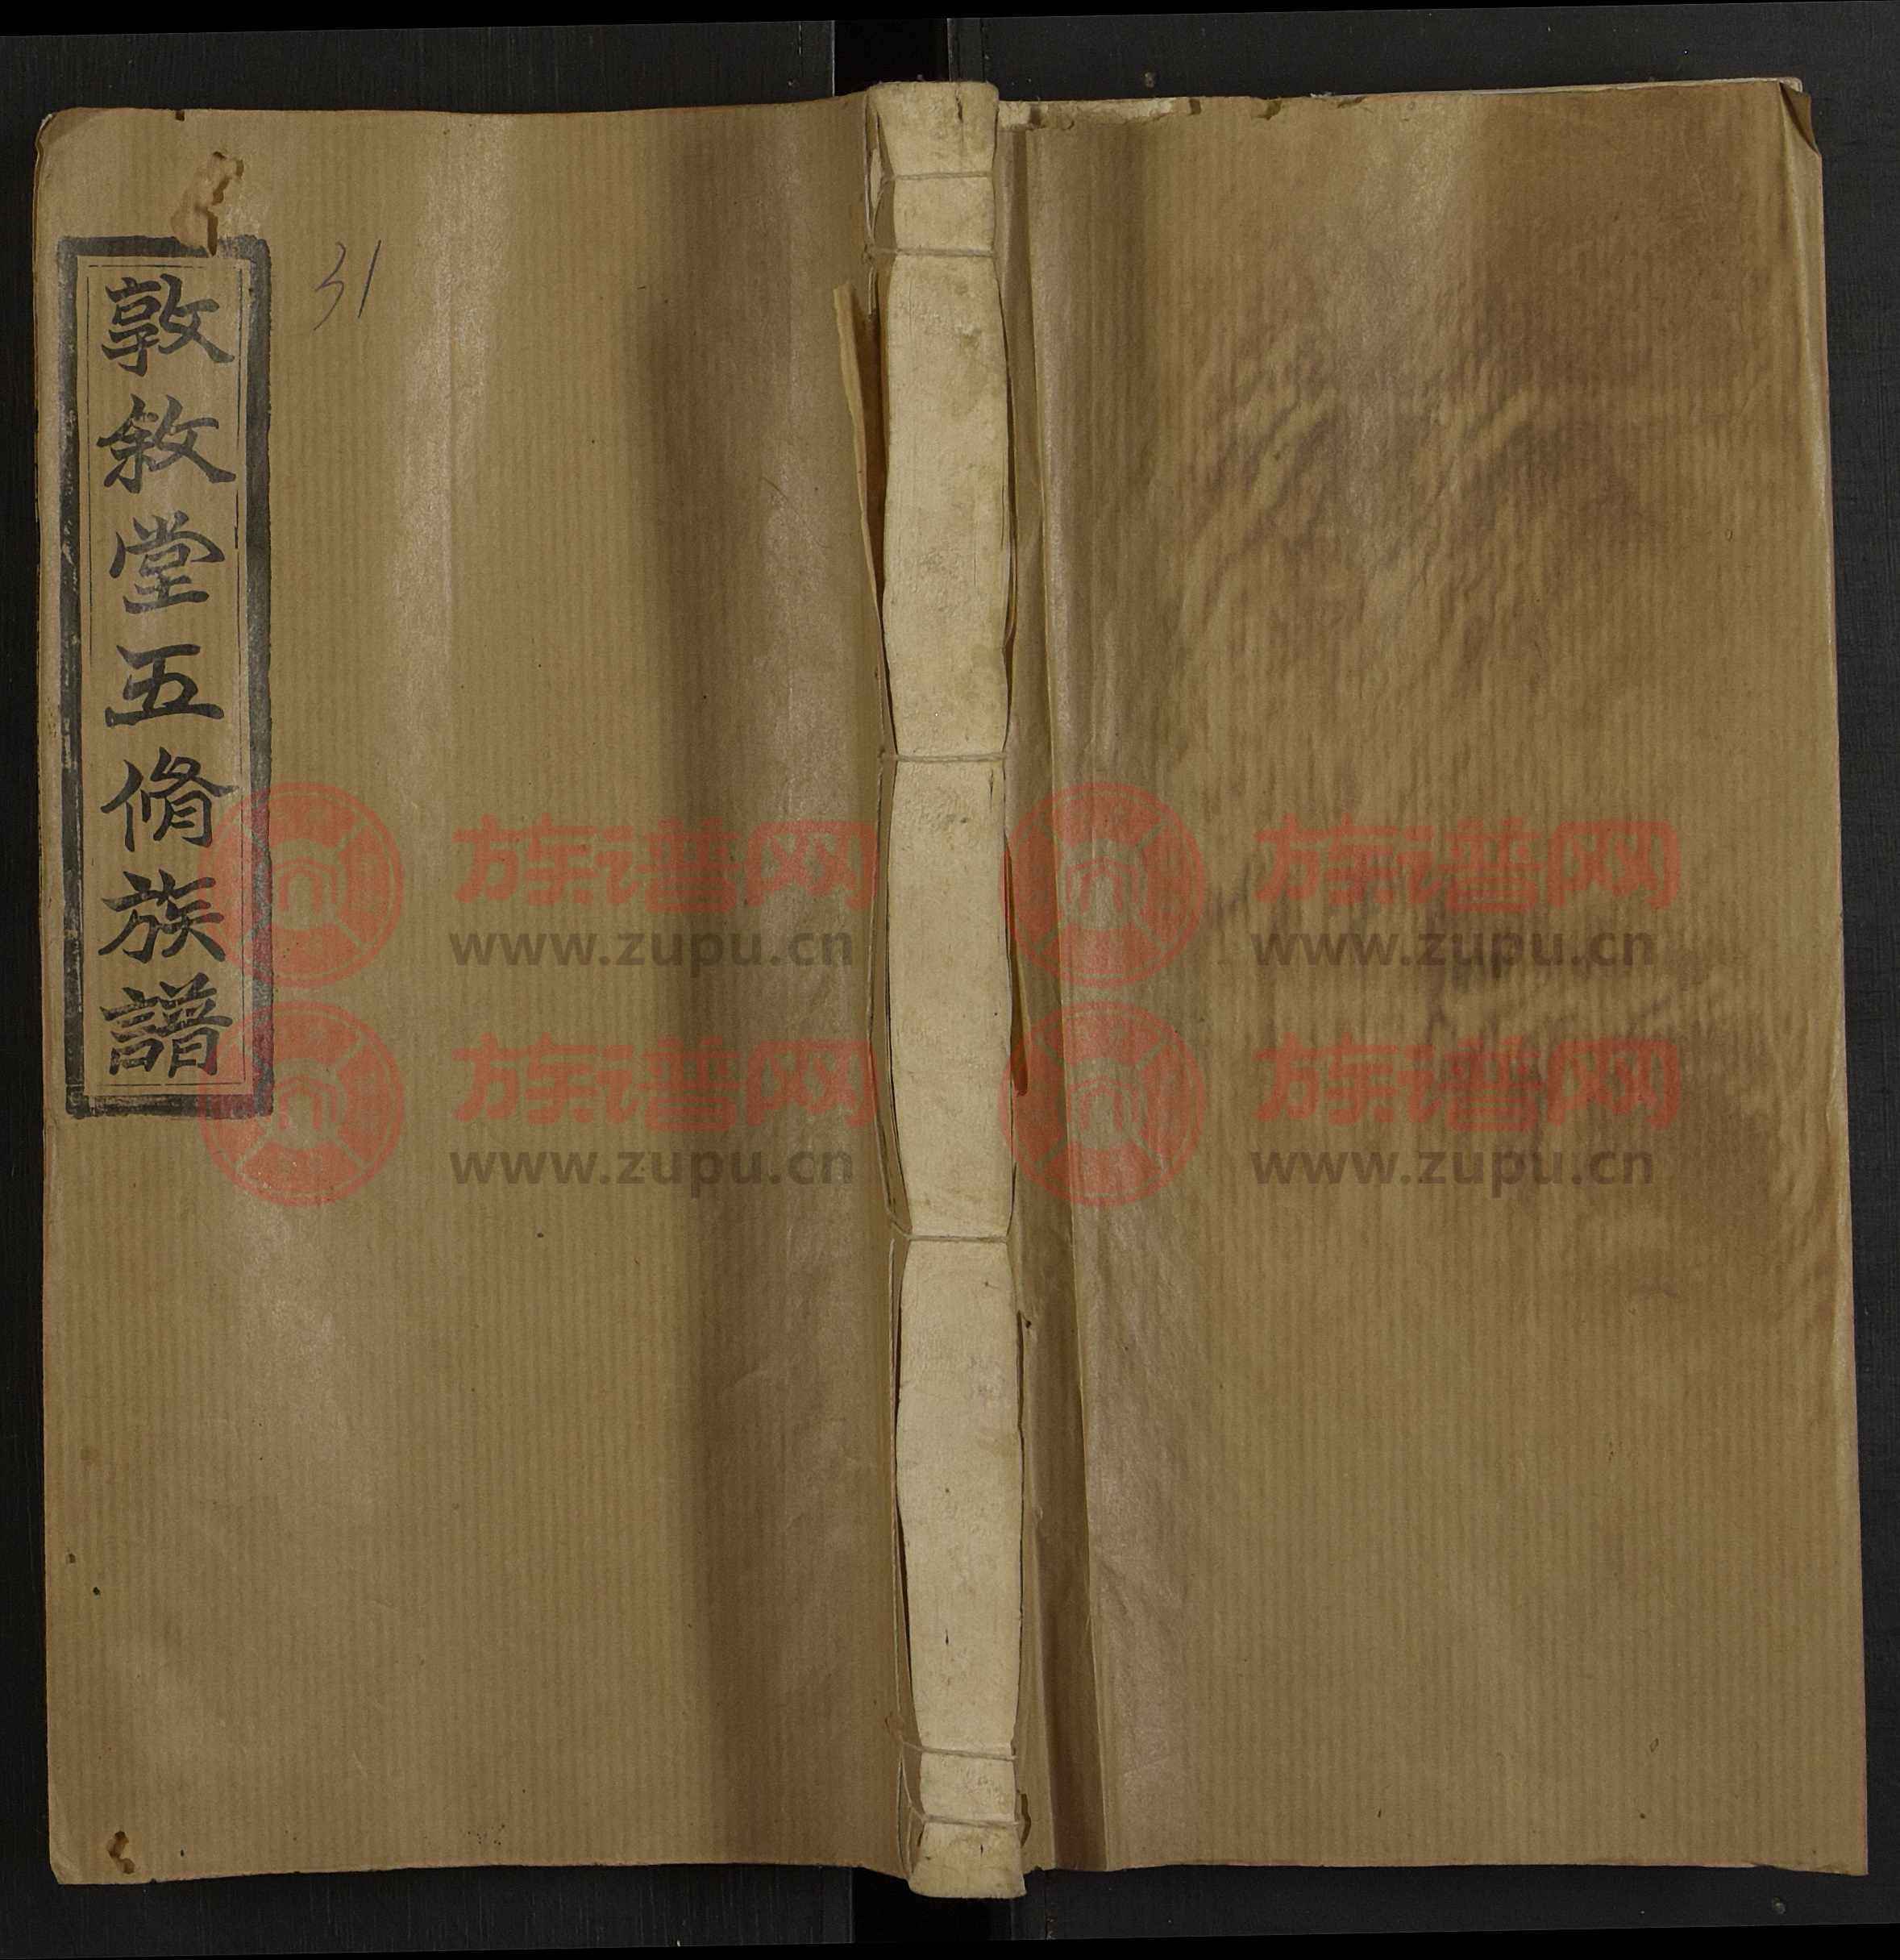 敦敘堂五脩族譜
31
族谱网
www.zupu.cn
族谱网
www.zupu.cn
族谱网
www.zupu.cn
族谱网
www.zupu.cn